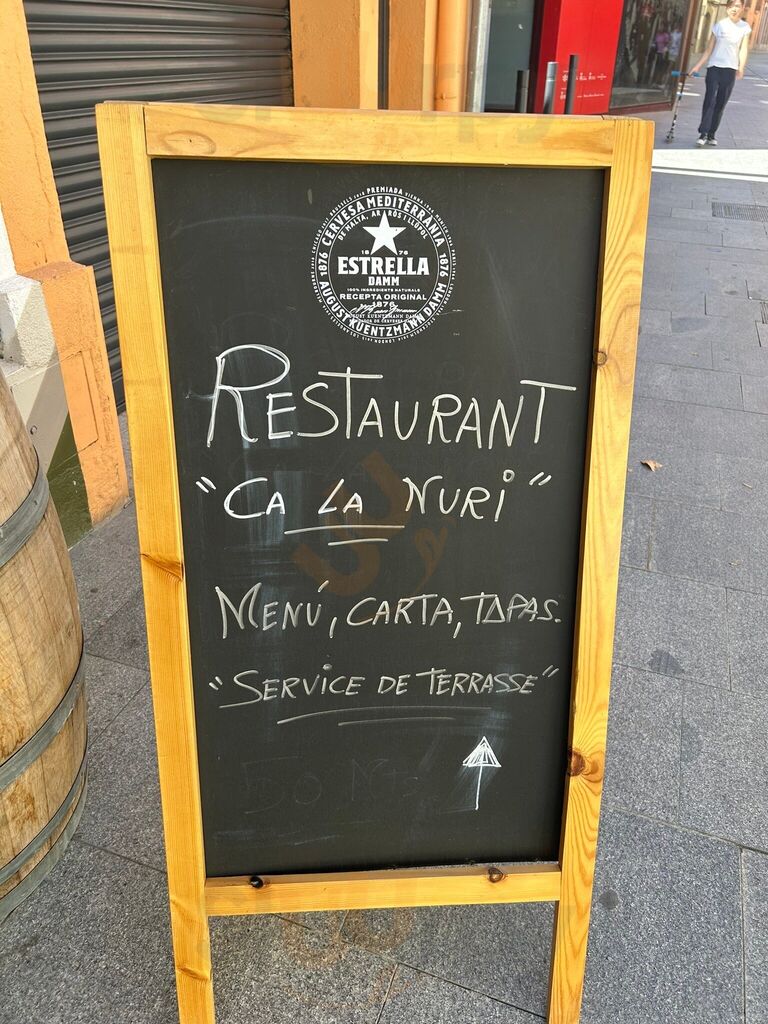 PREMIADA
CERVESA MEDITERRÀNIA
DE MALTA, ARRÒS I LLÚPOL
1876
1876
1876
ESTRELLA
DAMM
100% INGREDIENTS NATURALS
RECEPTA ORIGINAL
1876
AUGUST KUENTZMANN DAMM
RESTAURANT
"CA LA NURI"
MENÚ, CARTA, TAPAS.
"SERVICE DE TERRASSE"
50 Mts